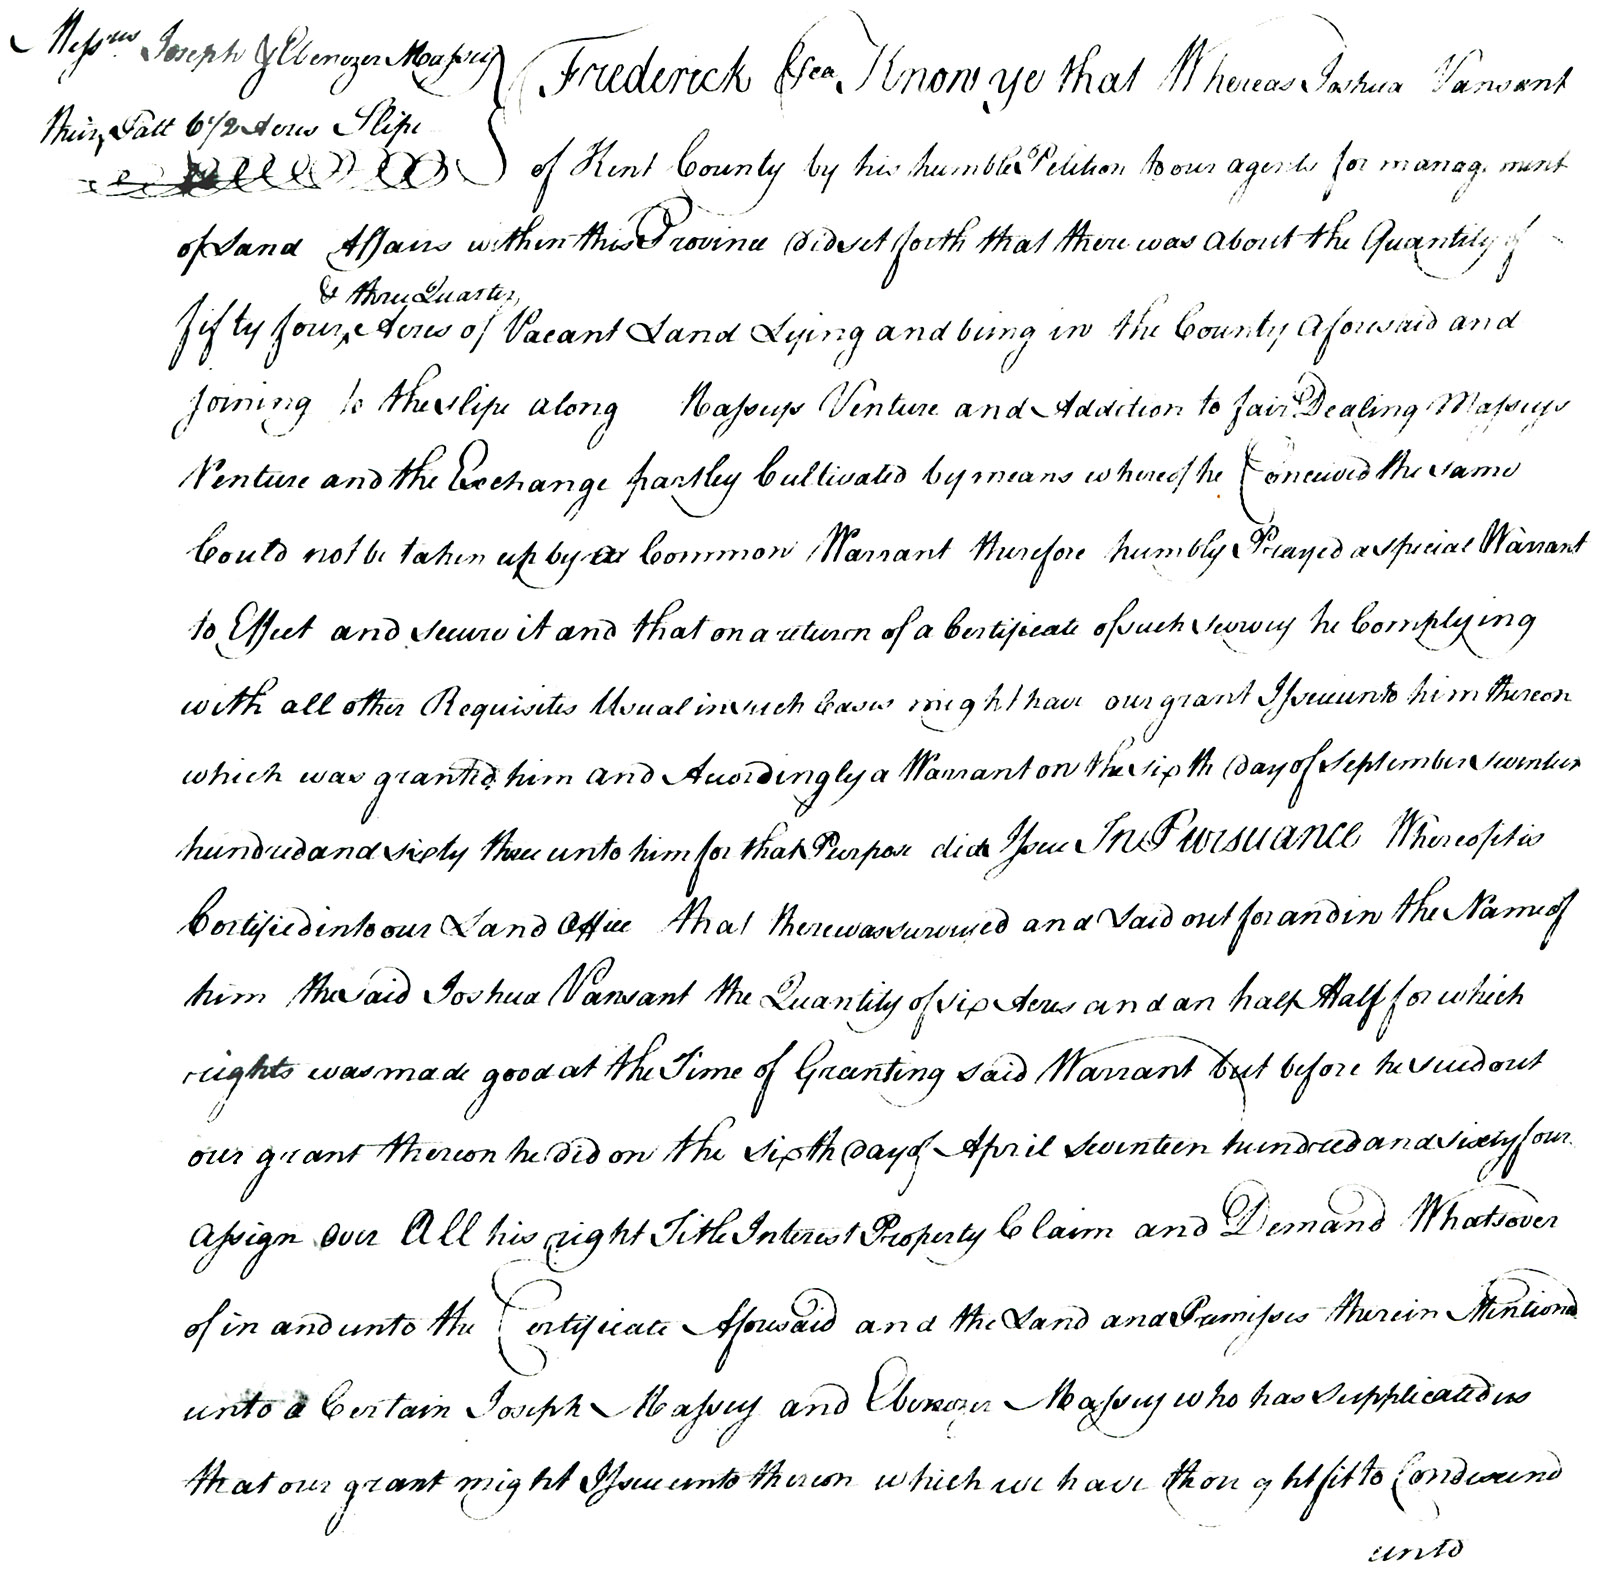 Messrs Joseph & Ebenezer Massey
their Patt 6 1/2 Acres Slipe
Frederick &ca Know ye that Whereas Joshua Vansant
of Kent County by his humble Petition to our agents for management
of Land Affairs within this Province did set forth that there was about the Quantity of
& three Quarters
fifty four ^ Acres of Vacant Land Lying and being in the County aforesaid and
joining to the slipe along Masseys Venture and Addition to fair Dealing Masseys
Venture and the Exchange partley Cultivated by means whereof he Conceived the same
Could not be taken up by a Common Warrant therefore humbly Prayed a special Warrant
to Effect and secure it and that on a return of a Certificate of such survey he Complying
with all other Requisites Usual in such Cases might have our grant Issue unto him thereon
which was granted him and Acordingly a Warrant on the sixth Day of September seventeen
hundred and sixty three unto him for that Purpose did Issue In Pursuance Whereof it is
Certified into our Land Office that there was surveyed and Laid out for and in the Name of
him the said Joshua Vansant the Quantity of six Acres and an half Half for which
rights was made good at the Time of Granting said Warrant but before he sued out
our grant thereon he did on the sixth Day of April seventeen hundred and sixty four
assign over All his right Title Interest Property Claim and Demand Whatsover
of in and unto the Certificate Aforesaid and the Land and Premisses therein Mentioned
unto a Certain Joseph Massey and Ebenezer Massey who has supplicated us
that our grant might Issue unto thereon which we have thought fit to Condesend
unto